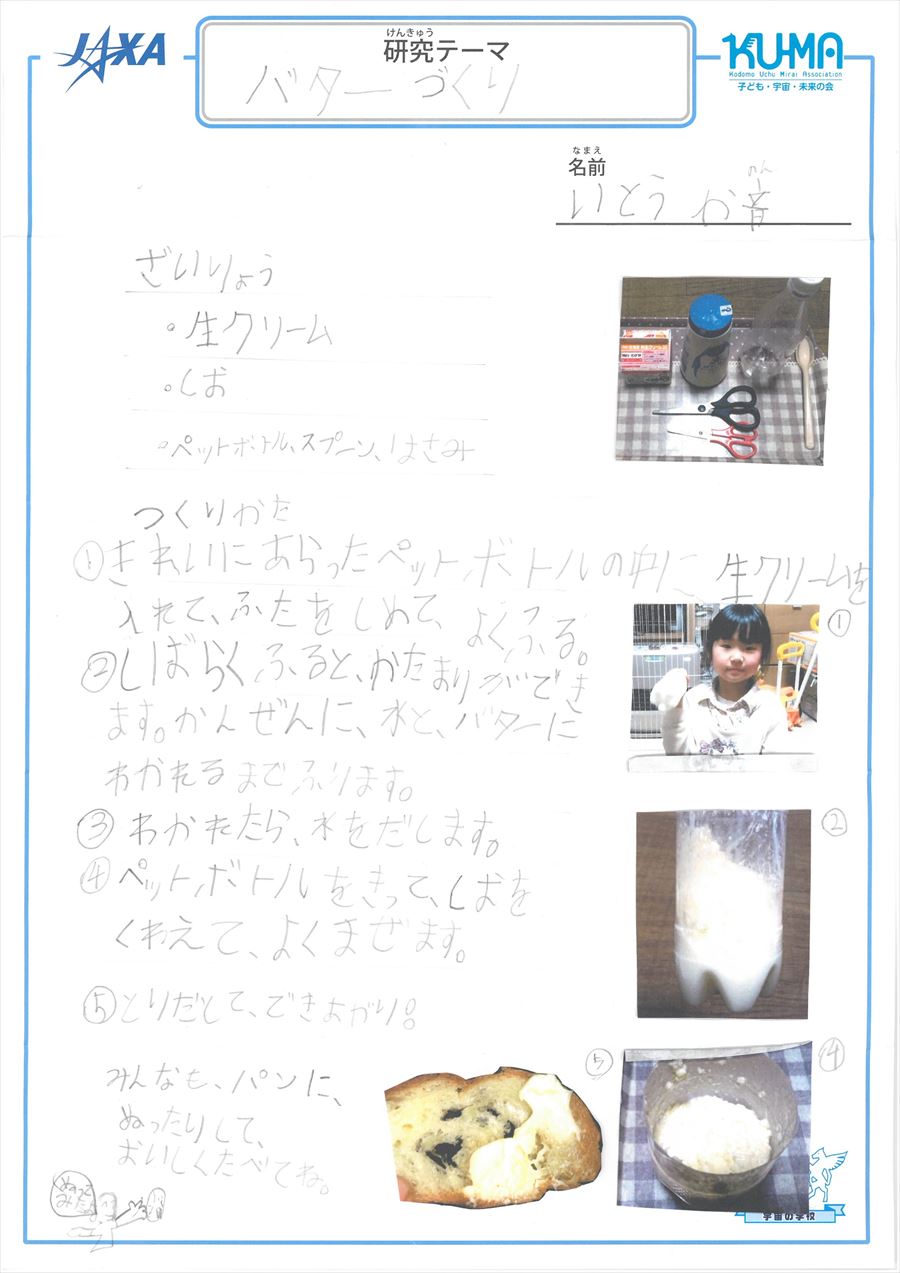 JAXA
けんきゅう
研究テーマ
バターづくり
KU-MA
Kodomo Uchu Mirai Association
子ども・宇宙・未来の会
なまえ
名前
のん
いとう か音
ざいりょう
・生クリーム
・しお
・ペットボトル、スプーン、はさみ
つくりかた
①きれいにあらったペットボトルの中に生クリームを
入れて、ふたをしめて、よくふる。
②しばらくふると、かたまりができ
ます。かんぜんに、水と、バターに
わかれるまでふります。
③わかれたら、水をだします。
④ペットボトルをきって、しおを
くわえて、よくまぜます。
⑤とりだして、できあがり!
①
②
④
⑤
みんなも、パンに、
ぬったりして、
おいしくたべてね。
宇宙の学校